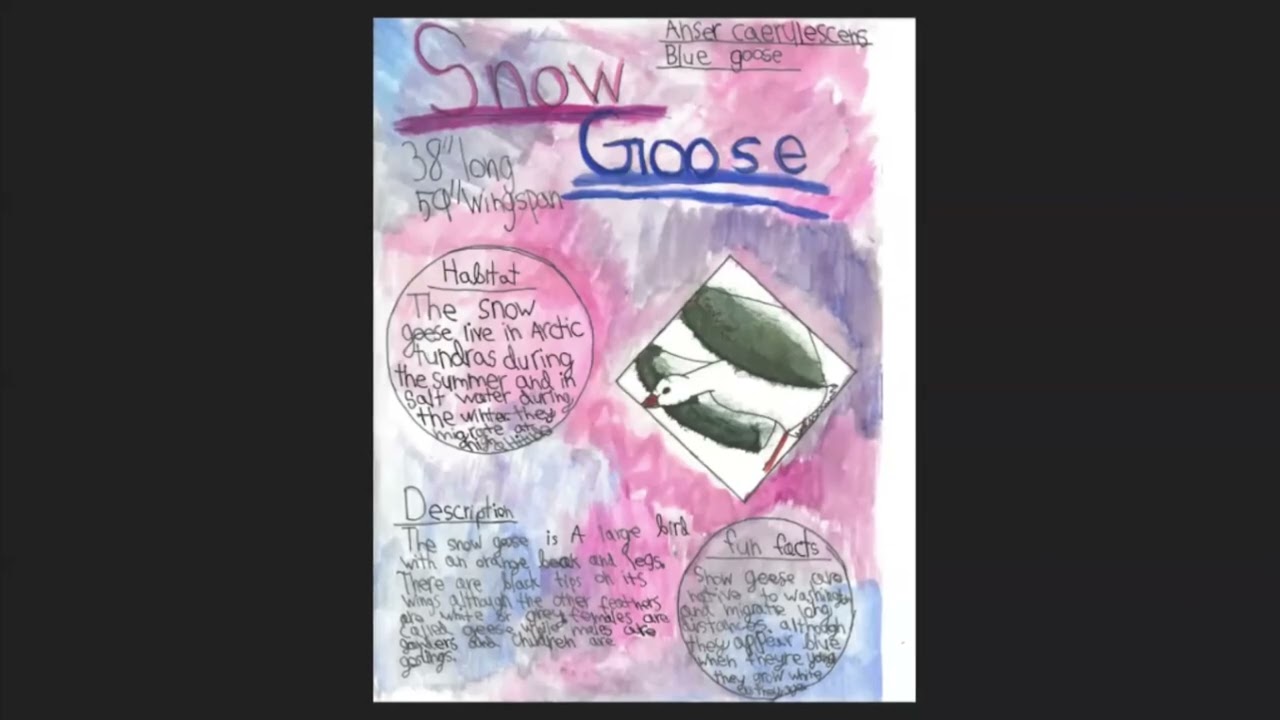 Anser caerulescens
Blue goose
Snow
Goose
38" long
59" wingspan
Habitat
The snow
geese live in Arctic
tundras during
the summer and in
Salt water during
the winter they
migrate at
Description
The snow goose is A large bird
with an orange beak and legs.
There are black tips on its
wings although the other feathers
are white or grey females are
called geese while males are
ganders and children are
goslings.
fun facts
Snow geese are
native to washington
and migrate long
distances. although
they appear blue
when theyre young
they grow white
as they age